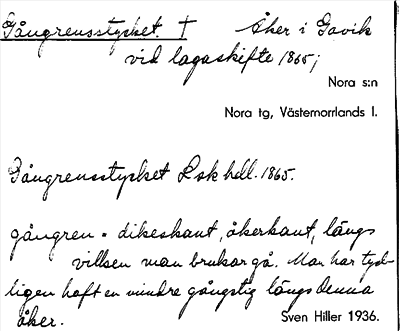 Gångrensstycket. † Åker i Gavik
vid lagaskifte 1865;
Nora s:n
Nora tg, Västernorrlands l.
Gångrensstycket Lskhdl. 1865.
gångren = dikeskant, åkerkant, längs
vilken man brukar gå. Man har tyd-
ligen haft en mindre gångstig längs denna
åker. Sven Hiller 1936.